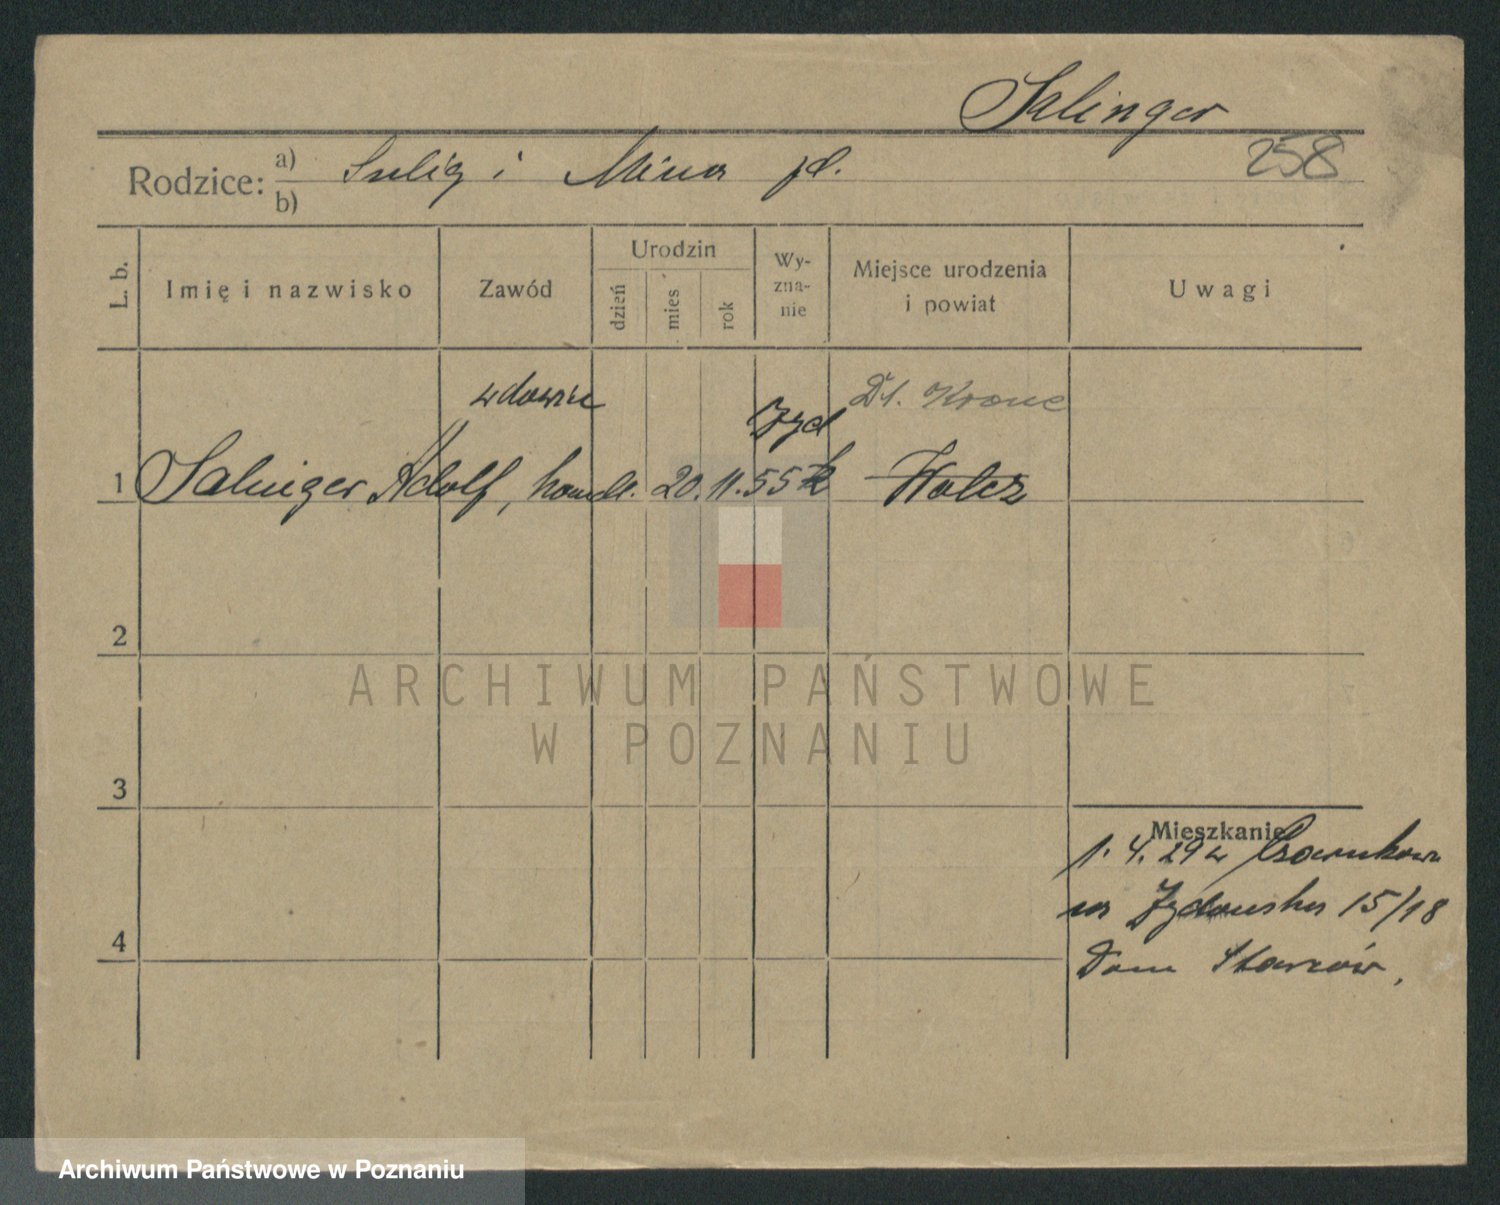 Salinger
258
Rodzice: a) i Mina
b)
L. b.
Imię i nazwisko
Zawód
Urodzin
dzień
mies
rok
Wy-
zna-
nie
Miejsce urodzenia
i powiat
Uwagi
wdowiec
żyd
Dt. Krone
1 Salinger Adolf, handl. 20. 11. 55 Wałcz
2
3
4
Mieszkanie
1. 4. 29 w Czarnkowa
na Żydowska 15/18
Dom Starców,
ARCHIWUM PAŃSTWOWE
W POZNANIU
Archiwum Państwowe w Poznaniu